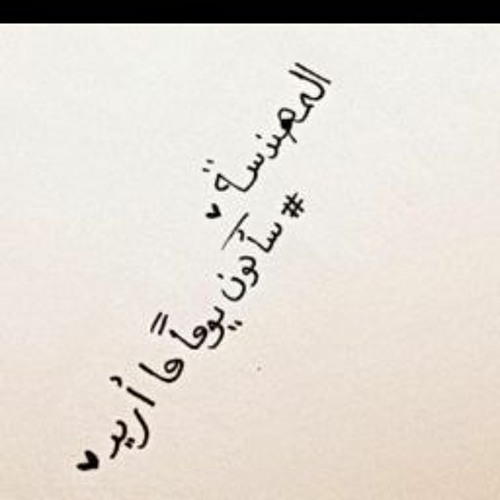 المهندسة ♥
# سأكون يوماً ما أريد ♥